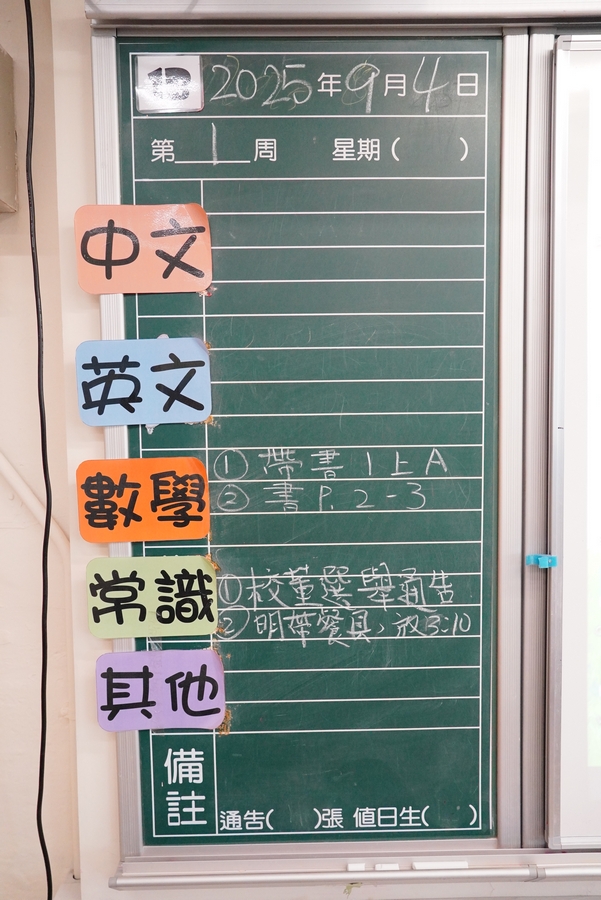 2025年9月4日
第1周 星期( )
中文
英文
數學
① 帶書1上A
② 書P.2-3
常識
① 校董選舉通告
② 明帶餐具，放3:10
其他
備註
通告( )張 值日生( )